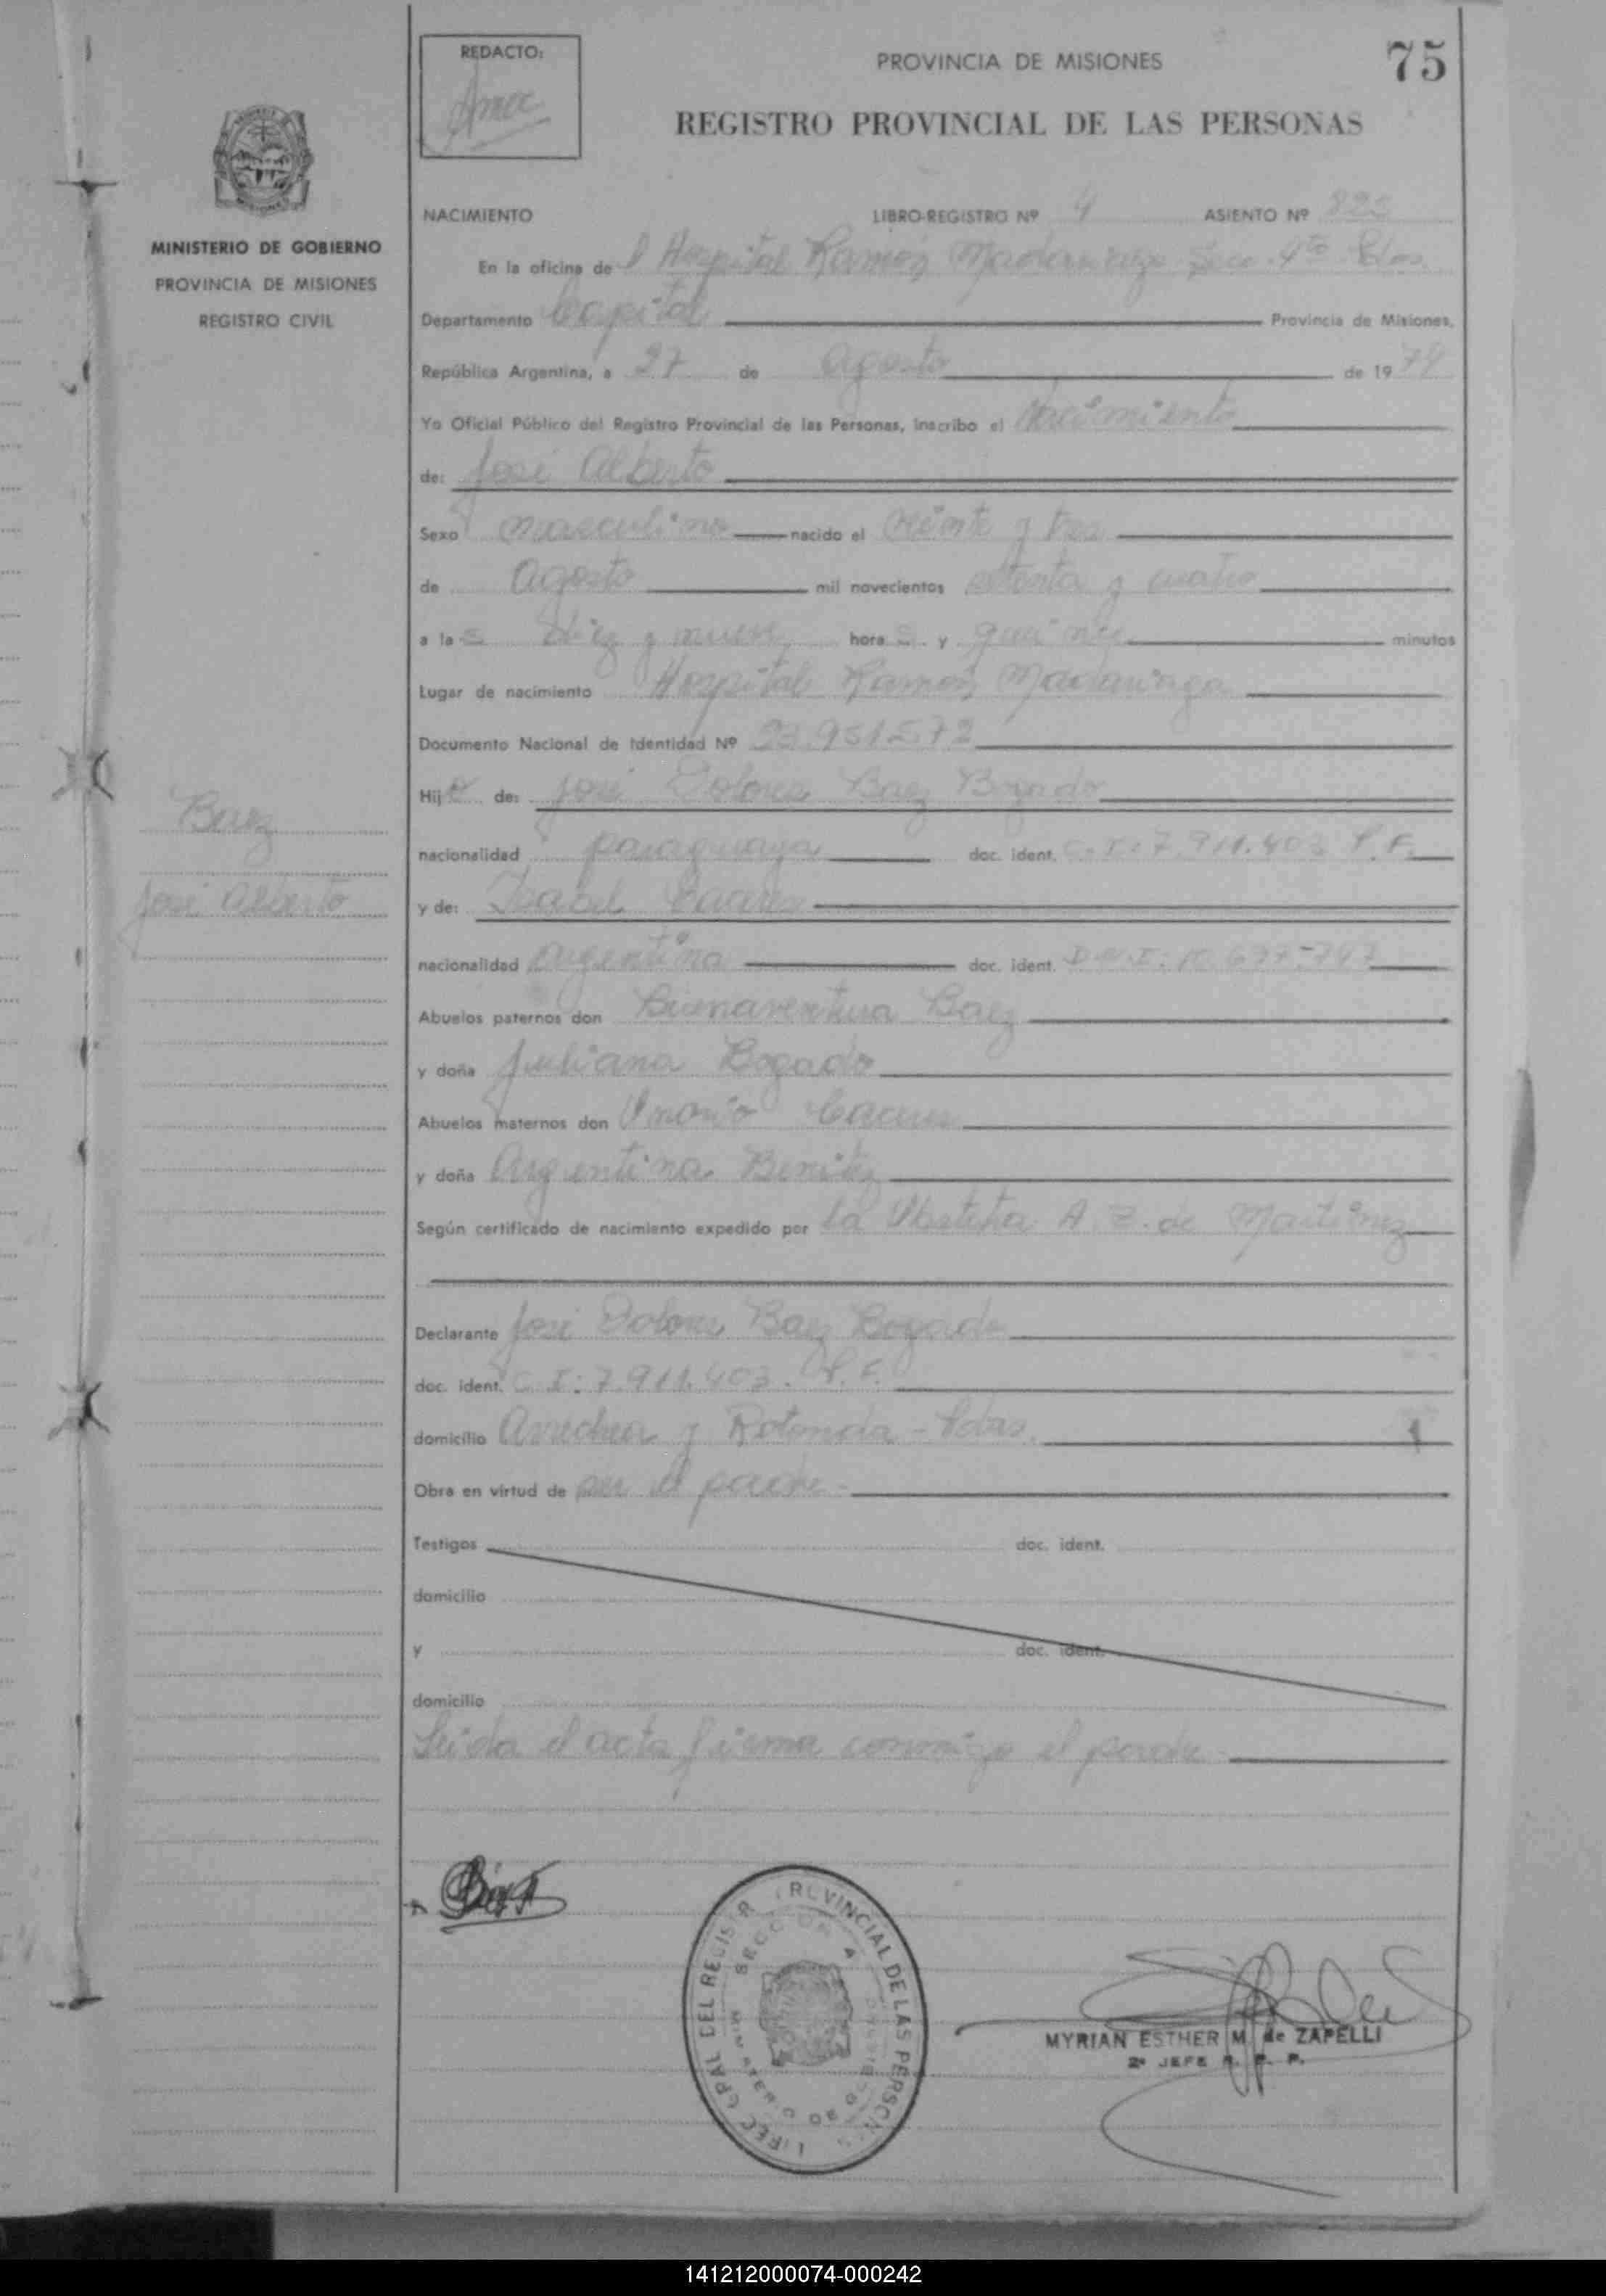 REDACTO:
PROVINCIA DE MISIONES
75
REGISTRO PROVINCIAL DE LAS PERSONAS
MINISTERIO DE GOBIERNO
PROVINCIA DE MISIONES
REGISTRO CIVIL
NACIMIENTO LIBRO-REGISTRO Nº 4 ASIENTO Nº
En la oficina de l Hospital Ramón Madariaga Secc. 4ta Pdas.
Departamento Capital Provincia de Misiones,
República Argentina, a 27 de Agosto de 1974
Yo Oficial Público del Registro Provincial de las Personas, inscribo el Nacimiento
de: José Alberto
Sexo masculino nacido el veinte y tres
de Agosto mil novecientos setenta y cuatro
a las diez y nueve horas y quince minutos
Lugar de nacimiento Hospital Ramón Madariaga
Documento Nacional de Identidad Nº 23.951.572
Hijo de: José Dolores Baez Bogado
nacionalidad paraguaya doc. ident. C.I: 7.911.403 P.F.
y de: Isabel Caceres
nacionalidad argentina doc. ident. D.N.I: 10.677.747
Abuelos paternos don Buenaventura Baez
y doña Juliana Bogado
Abuelos maternos don Caceres
y doña Argentina Benitez
Según certificado de nacimiento expedido por la Obstetra A. Z. de Martinez
Declarante José Dolores Baez Bogado
doc. ident. C.I: 7.911.403. P.F.
domicilio Arrechea y Rotonda - Pdas.
Obra en virtud de ser el padre-
Testigos doc. ident.
domicilio
y doc. ident.
domicilio
Leida el acta firma conmigo el padre-
Baez
José Alberto
MYRIAN ESTHER M. de ZAPELLI
2º JEFE R. P. P.
141212000074-000242